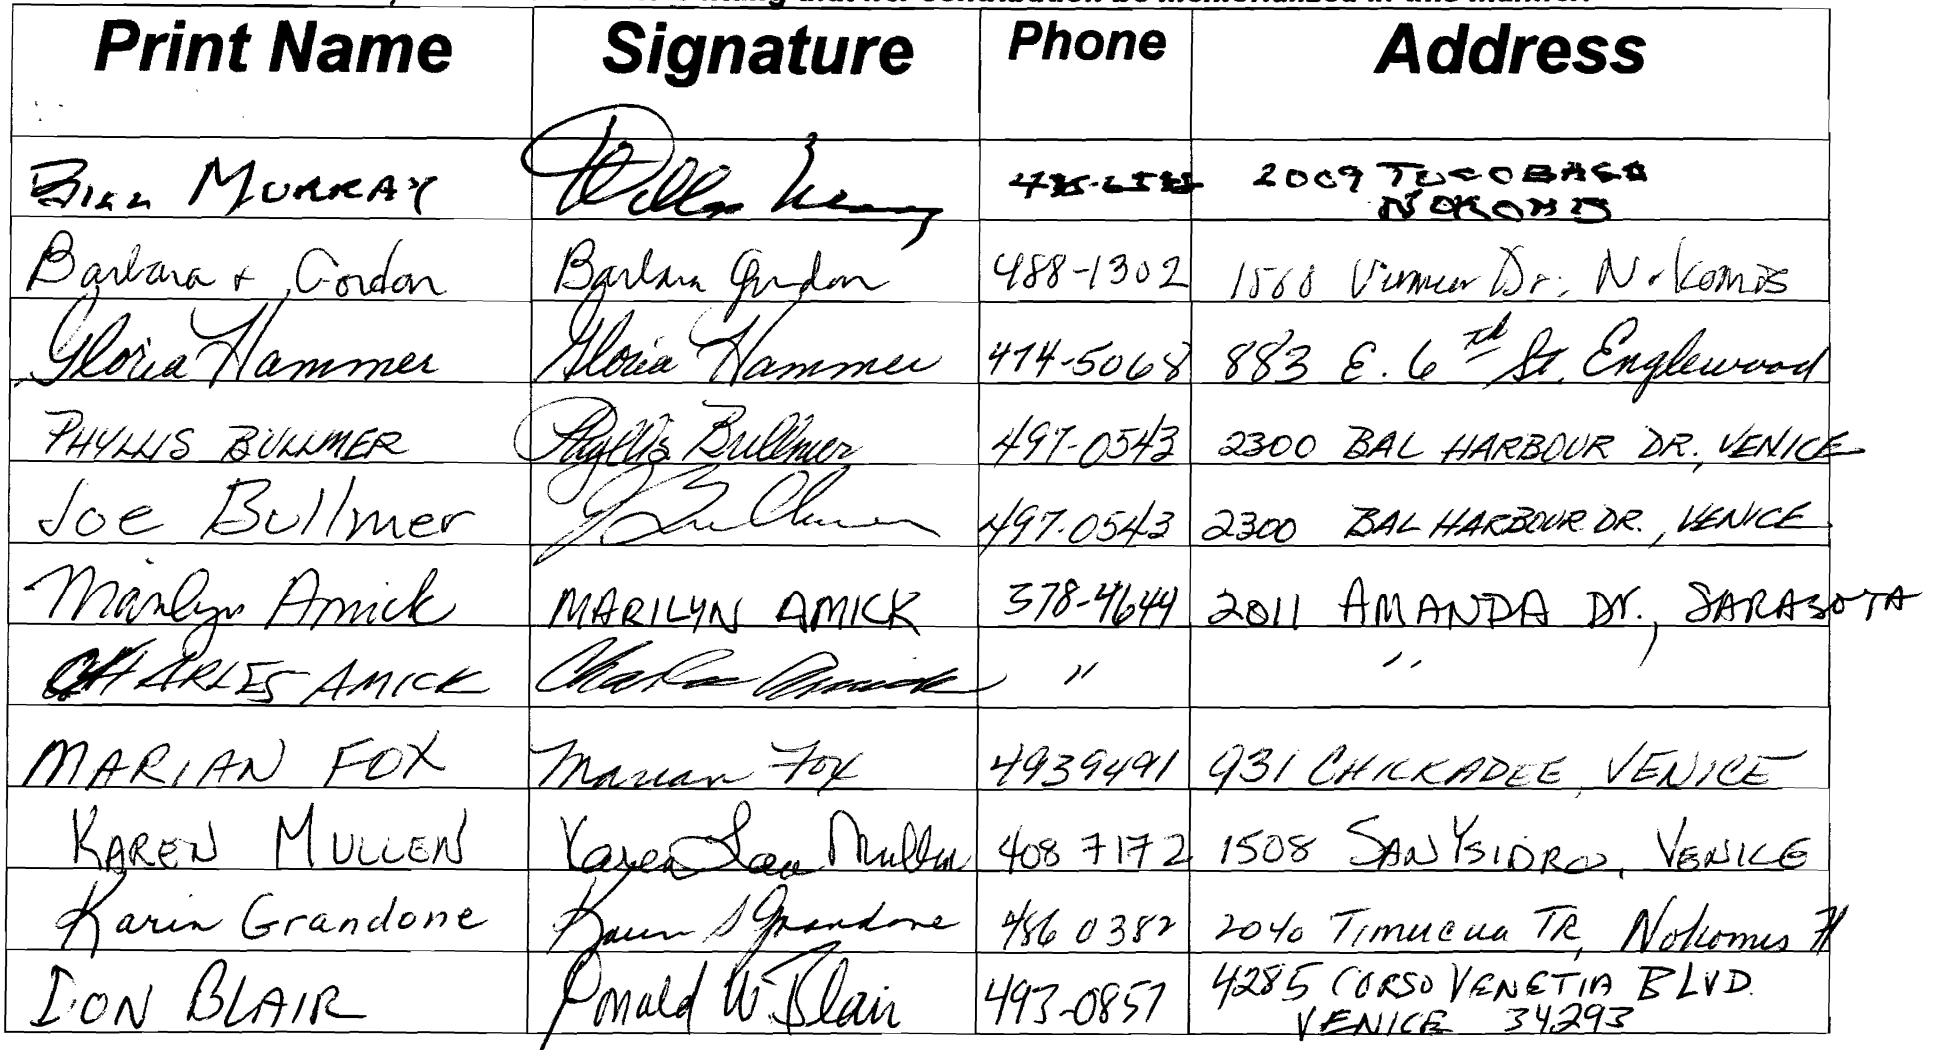 that her contribution be memorialized in this manner.
Print Name Signature Phone Address
Bill Murray 2009 Tocobaga
Nokomis
Barbara + Gordon Barbara Gordon 488-1302 Dr., Nokomis
Gloria Hammer Gloria Hammer 474-5068 883 E. 6th St. Englewood
PHYLLIS BULLMER Phyllis Bullmer 497-0543 2300 BAL HARBOUR DR., VENICE
Joe Bullmer J Bullmer 497-0543 2300 BAL HARBOUR DR., VENICE
Marilyn Amick MARILYN AMICK 378-4644 2011 AMANDA Dr., SARASOTA
CHARLES AMICK Charles Amick " "
MARIAN FOX Marian Fox 4939491 931 CHICKADEE, VENICE
KAREN MULLEN Karen Mullen 408 7172 1508 SAN YSIDRO, VENICE
Karin Grandone Karin S Grandone 486 0382 2040 Timucua TR, Nokomis Fl
DON BLAIR Donald W. Blair 493-0857 4285 CORSO VENETIA BLVD.
VENICE 34293